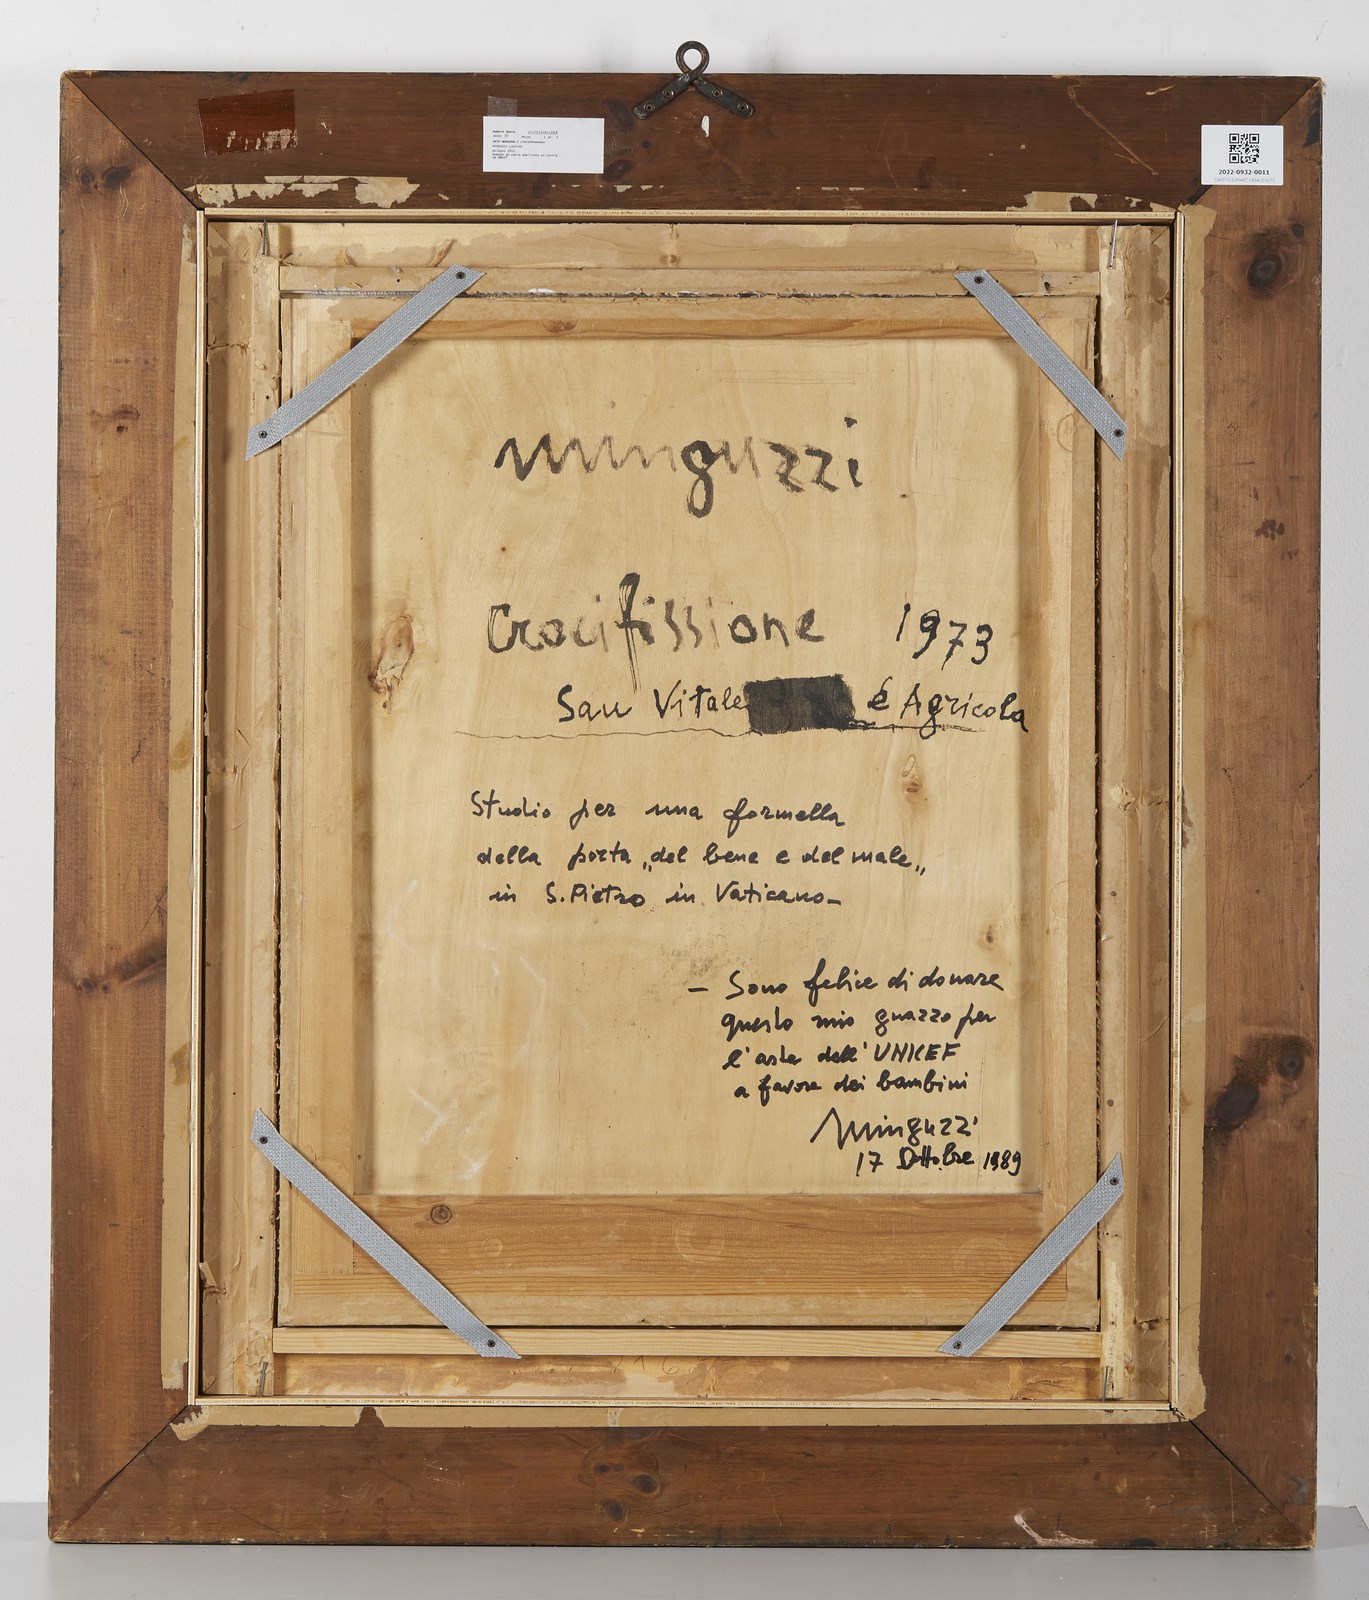 ARTE MODERNA E CONTEMPORANEA
2022-0932-0011
minguzzi
Crocifissione 1973
San Vitale è Agricola
Studio per una formella
della porta „del bene e del male„
in S. Pietro in Vaticano-
- Sono felice di donare
questo mio guazzo per
l'asta dell'UNICEF
a favore dei bambini
Minguzzi
17 Ottobre 1989